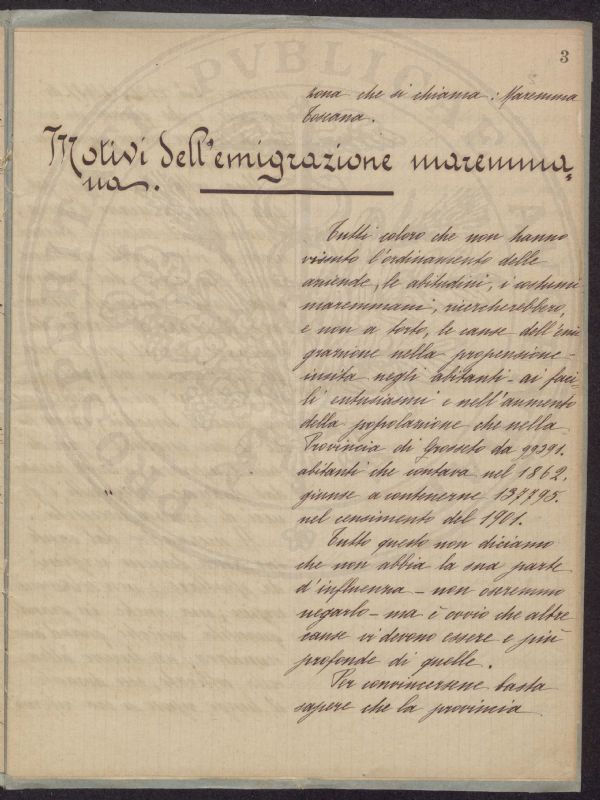 3
zona che si chiama: Maremma
Toscana.
Motivi dell'emigrazione maremma=
na.
Tutti coloro che non hanno
vissuto l'ordinamento delle
aziende, le abitudini, i costumi
maremmani, ricercherebbero,
e non a torto, le cause dell'emi
grazione nella propensione -
insita negli abitanti - ai faci
li entusiasmi e nell'aumento
della popolazione che nella
Provincia di Grosseto da 99291.
abitanti che contava nel 1862,
giunse a contenerne 137795.
nel censimento del 1901.
Tutto questo non diciamo
che non abbia la sua parte
d'influenza - non oseremmo
negarlo - ma è ovvio che altre
cause vi devono essere e più
profonde di quelle.
Per convincersene basta
sapere che la provincia